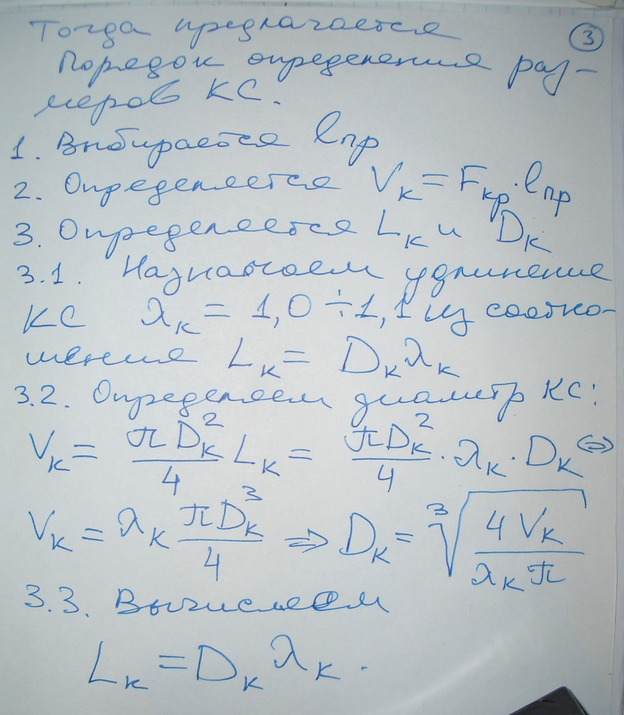 Тогда предлагается ③
порядок определения раз-
меров КС.
1. Выбирается lпр
2. Определяется Vк = Fкр · lпр
3. Определяется Lк и Dк
3.1. Назначаем удлинение
КС λк = 1,0 ÷ 1,1 из соотно-
шения Lк = Dк λк
3.2. Определяем диаметр КС:
Vк = πDк²/4 Lк = πDк²/4 · λк · Dк ⇔
Vк = λк πDк³/4 ⇒ Dк = ∛(4Vк/(λк π))
3.3. Вычисляем
Lк = Dк λк.